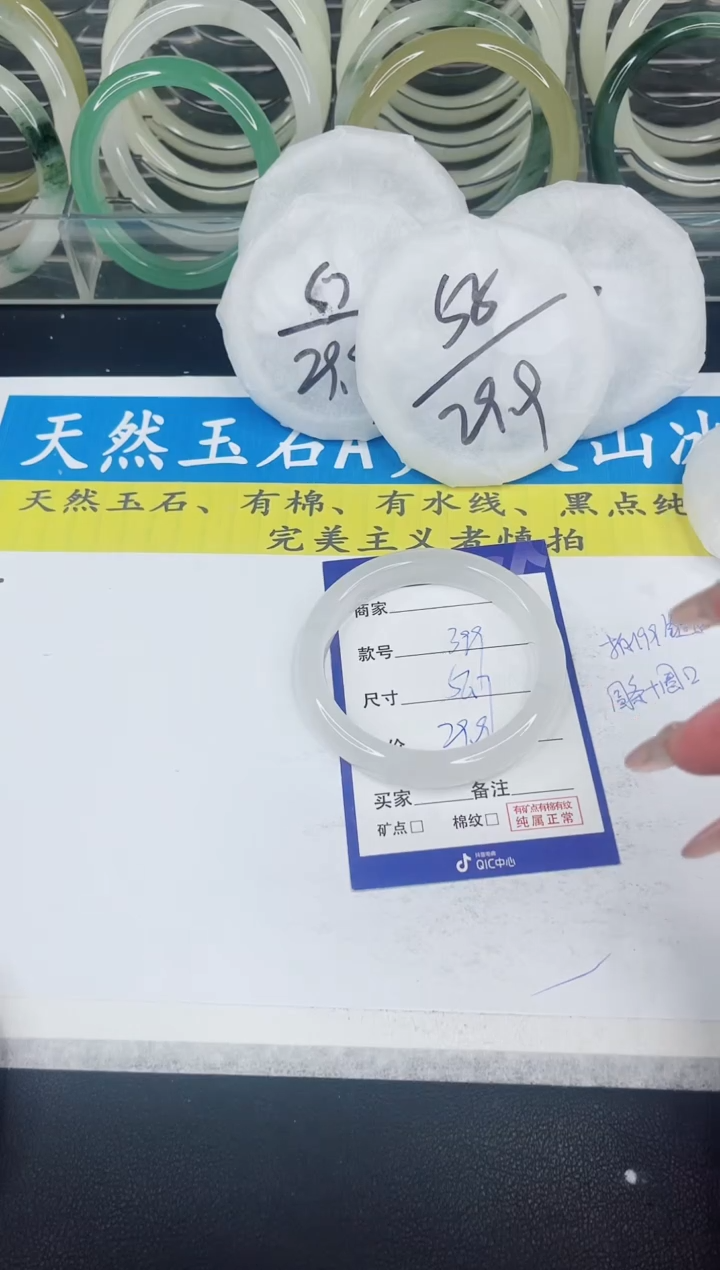 57
29.
56
29.9
天然玉石A
山冰
天然玉石、有棉、有水线、黑点纯
完美主义者慎拍
商家
款号 399
尺寸 57
价 29.9
买家 备注
矿点□ 棉纹□
有矿点有棉有纹
纯属正常
抖音电商
QIC中心